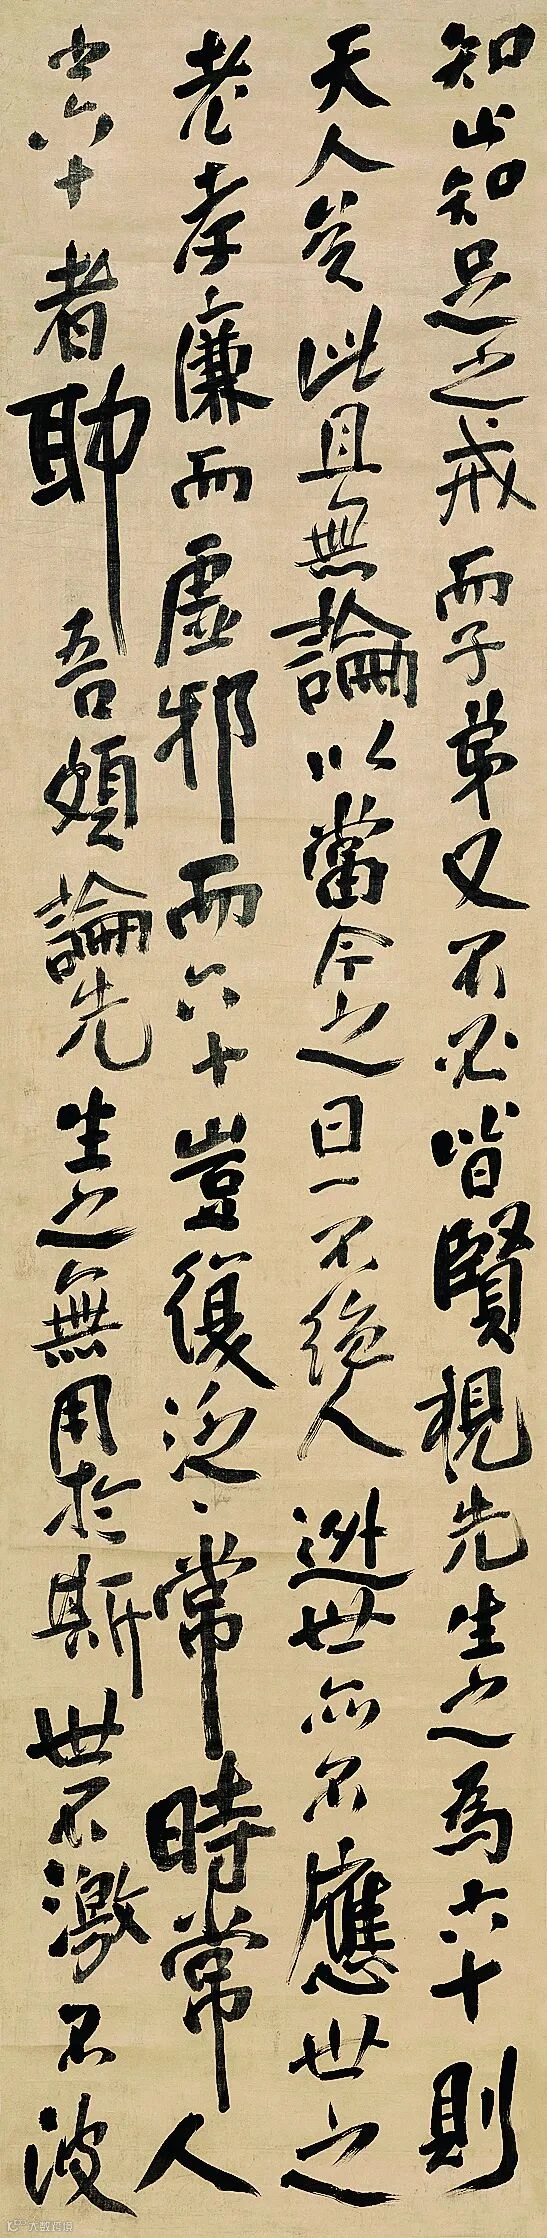 知止知足之戒而子弟又不必皆賢視先生之為六十則
天人矣此且無論以當今之日一不絕人逃世而不應世之
老孝廉而虛邪而六十豈復泛泛常常時常人
之六十者耶吾頗論先生之無用於斯世不激不波
大数跨境